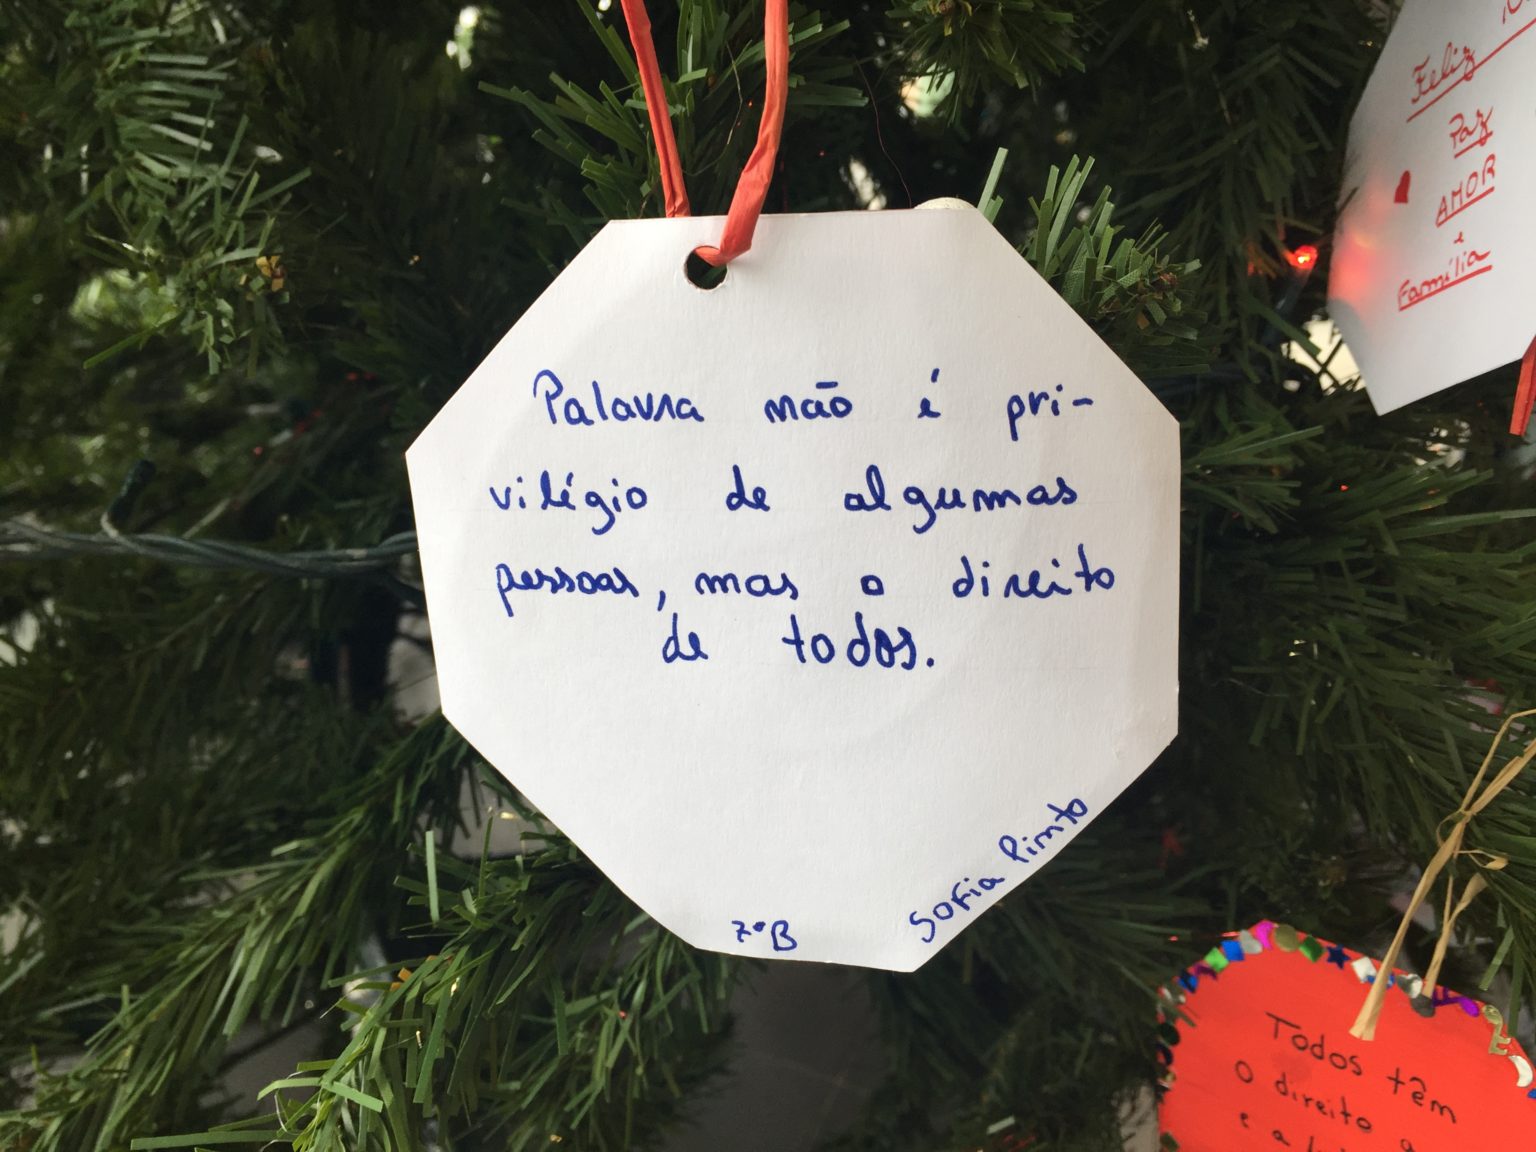 Palavra não é pri-
vilégio de algumas
pessoas, mas o direito
de todos.
Sofia Pinto
7ºB
Feliz
Paz
AMOR
e
Família
Todos têm
o direito
e a